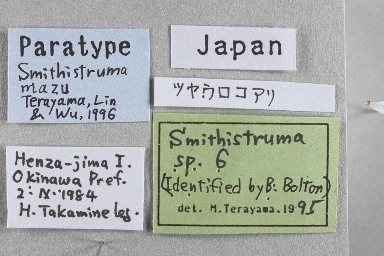 Paratype
Smithistruma
mazu
Terayama, Lin
& Wu, 1996
Japan
ツヤウロコアリ
Henza-jima I.
Okinawa Pref.
2. IX. 1984
H. Takamine leg.
Smithistruma
sp. 6
(Identified by B. Bolton)
det. M.Terayama.1995